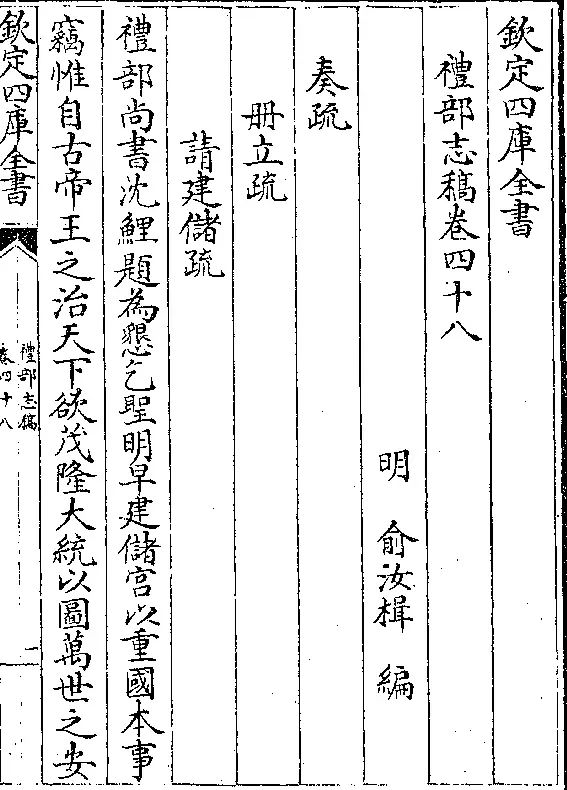 欽定四庫全書
禮部志稿卷四十八
明 俞汝楫 編
奏疏
冊立疏
請建儲疏
禮部尚書沈鯉題為懇乞聖明早建儲宮以重國本事
竊惟自古帝王之治天下欲茂隆大統以圖萬世之安
欽定四庫全書
禮部志稿
卷四十八
一